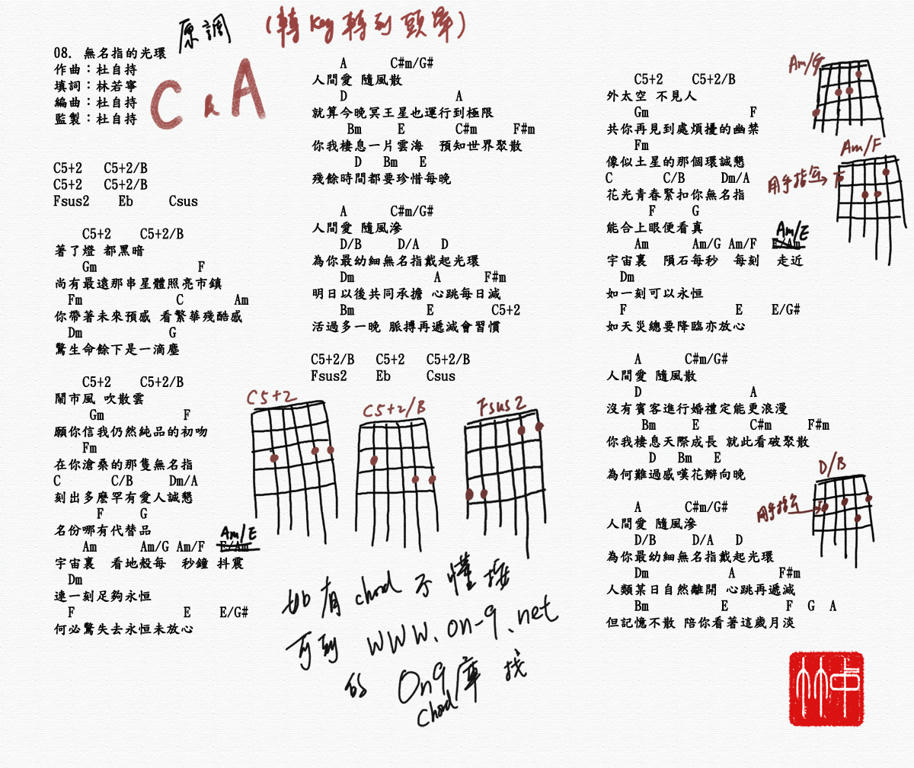 原調
(轉Key轉到頭暈)
08. 無名指的光環
作曲：杜自持
填詞：林若寧
編曲：杜自持
監製：杜自持
C & A
C5+2 C5+2/B
C5+2 C5+2/B
Fsus2 Eb Csus
C5+2 C5+2/B
著了燈 都黑暗
Gm F
尚有最遠那串星體照亮市鎮
Fm C Am
你帶著未來預感 看繁華殘酷感
Dm G
驚生命餘下是一滴塵
C5+2 C5+2/B
鬧市風 吹散雲
Gm F
願你信我仍然純品的初吻
Fm
在你滄桑的那隻無名指
C C/B Dm/A
刻出多麼罕有愛人誠懇
F G
名份哪有代替品
Am/E
Am Am/G Am/F E/Am
宇宙裏 看地殼每 秒鐘 抖震
Dm
連一刻足夠永恒
F E E/G#
何必驚失去永恒未放心
A C#m/G#
人間愛 隨風散
D A
就算今晚冥王星也運行到極限
Bm E C#m F#m
你我棲息一片雲海 預知世界聚散
D Bm E
殘餘時間都要珍惜每晚
A C#m/G#
人間愛 隨風滲
D/B D/A D
為你最幼細無名指戴起光環
Dm A F#m
明日以後共同承擔 心跳每日減
Bm E C5+2
活過多一晚 脈搏再遞減會習慣
C5+2/B C5+2 C5+2/B
Fsus2 Eb Csus
C5+2
C5+2/B
Fsus2
如有chord不懂揸
可到 www.on-9.net
的 On9 chord庫 找
C5+2 C5+2/B
外太空 不見人
Gm F
共你再見到處煩擾的幽禁
Fm
像似土星的那個環誠懇
C C/B Dm/A
花光青春緊扣你無名指
F G
能合上眼便看真
Am/E
Am Am/G Am/F E/Am
宇宙裏 隕石每秒 每刻 走近
Dm
如一刻可以永恒
F E E/G#
如天災總要降臨亦放心
A C#m/G#
人間愛 隨風散
D A
沒有賓客進行婚禮定能更浪漫
Bm E C#m F#m
你我棲息天際成長 就此看破聚散
D Bm E
為何難過感嘆花瓣向晚
A C#m/G#
人間愛 隨風滲
D/B D/A D
為你最幼細無名指戴起光環
Dm A F#m
人類某日自然離開 心跳再遞減
Bm E F G A
但記憶不散 陪你看著這歲月淡
Am/G
Am/F
用手指公
D/B
用手指公